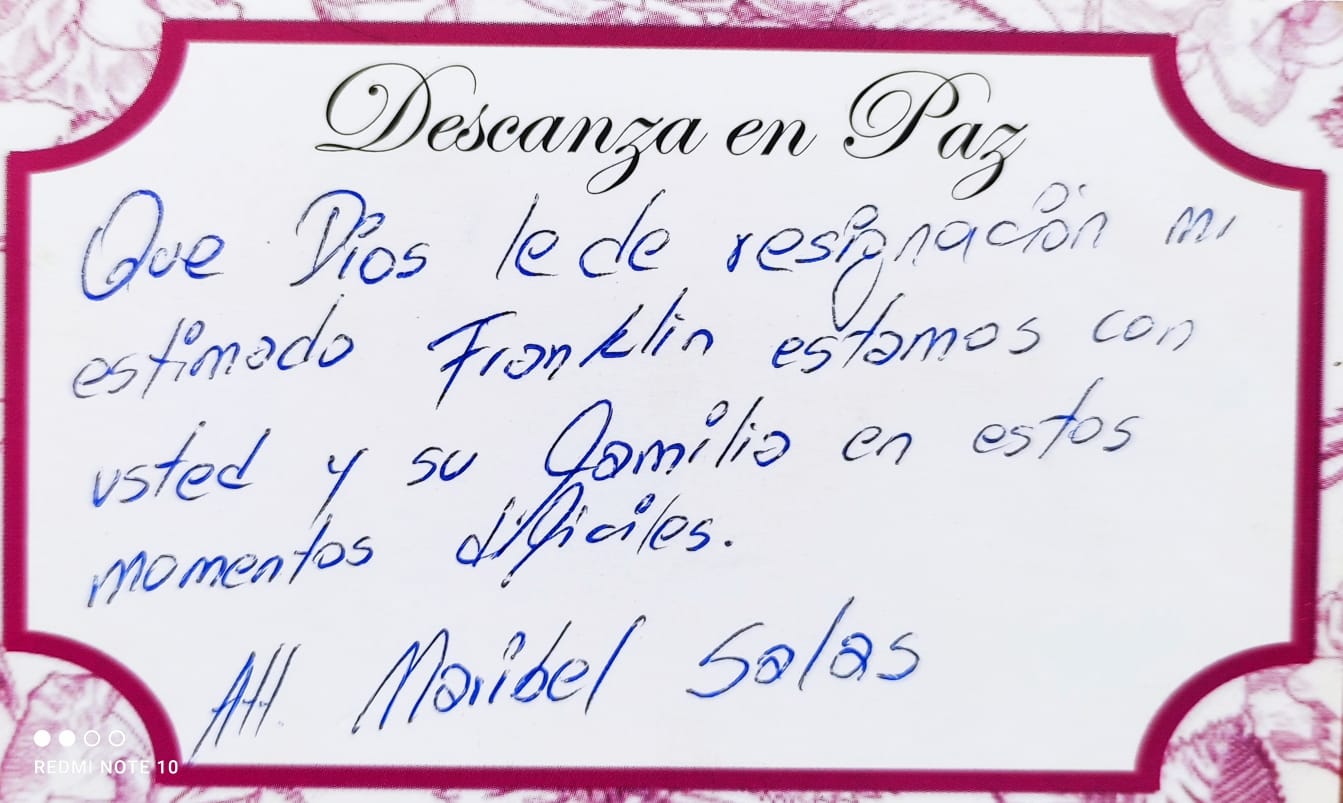 Descanza en Paz
Que Dios le de resignación mi
estimado Franklin estamos con
usted y su familia en estos
momentos dificiles.
Att. Maribel Salas
REDMI NOTE 10